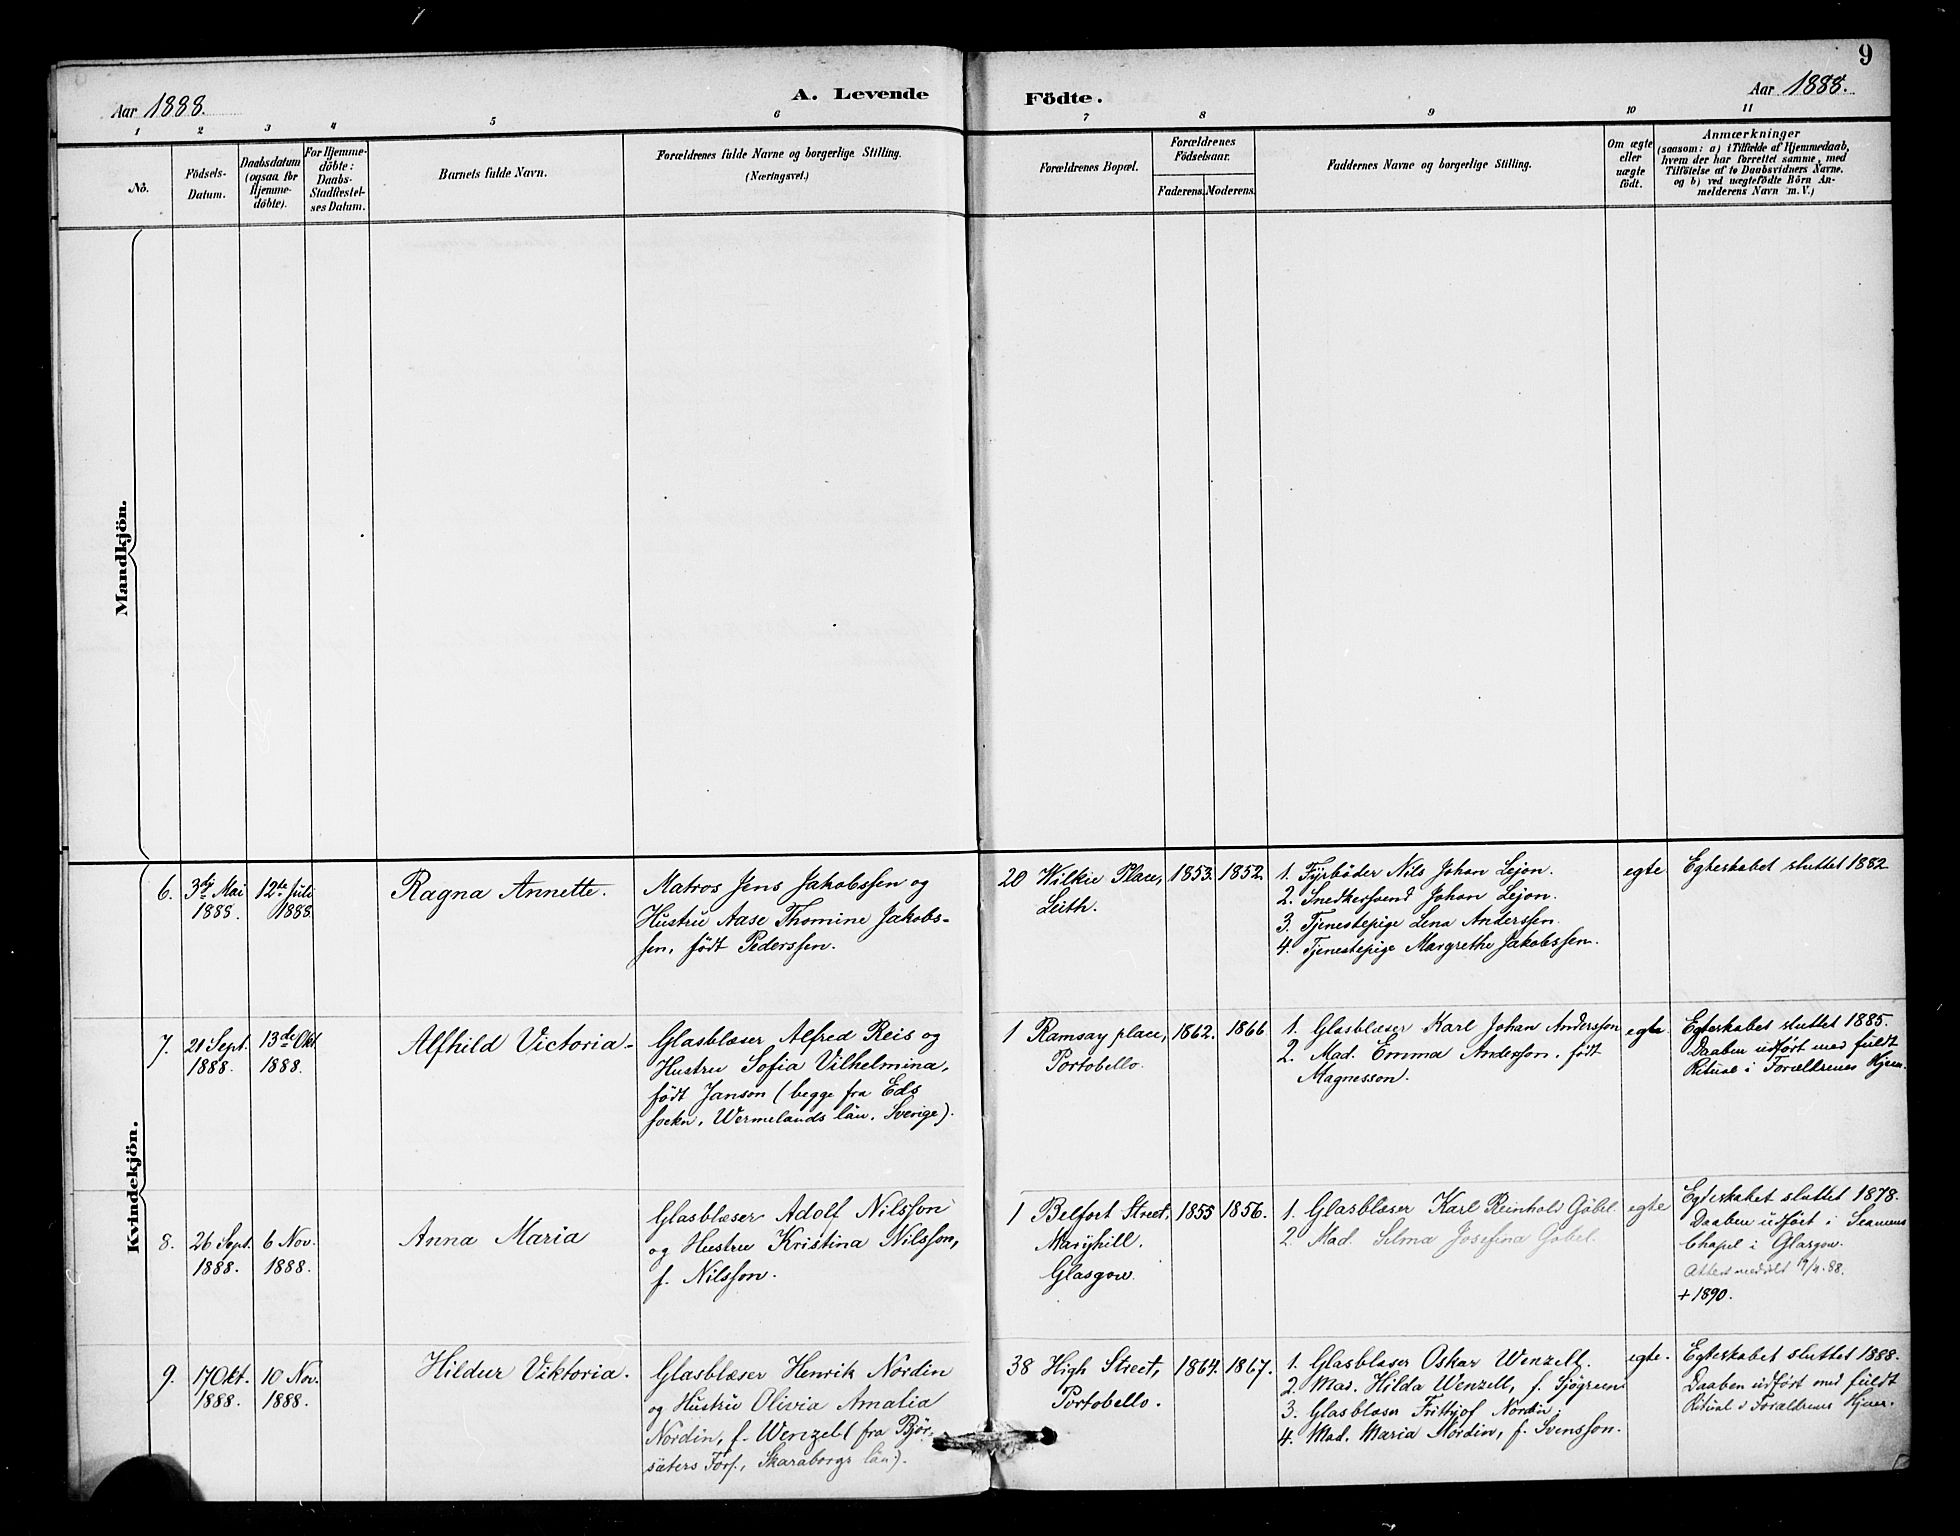 9
Aar 1888.
A. Levende
Födte.
Aar 1888.
1 2 3 4 5 6 7 8 9 10 11
No.
Födsels-
Datum.
Daabsdatum
(ogsaa for
Hjemme-
döbte).
For Hjemme-
döbte:
Daabs-
Stadfestel-
ses Datum.
Barnets fulde Navn.
Forældrenes fulde Navne og borgerlige Stilling.
(Næringsvei.)
Forældrenes Bopæl.
Forældrenes
Födselsaar.
Faderens. Moderens.
Faddernes Navne og borgerlige Stilling.
Om ægte
eller
uægte
födt.
Anmærkninger
(saasom: a) i Tilfælde af Hjemmedaab,
hvem der har forrettet samme, med
Tilföielse af to Daabsvidners Navne,
og b) ved uægtefödte Börn An-
melderens Navn m. V.)
Mandkjön.
Kvindekjön.
6.
3die Mai
1888.
12te Juli
1888.
Ragna Annette.
Matros Jens Jakobssen og
Hustru Aase Thomine Jakobs-
sen, født Pederssen.
20 Wilkie Place,
Leith.
1853.
1852.
1. Fyrbøder Nils Johan Lejon.
2. Snedkersvend Johan Lejon.
3. Tjenestepige Lena Anderssen.
4. Tjenestepige Margrethe Jakobssen.
egte
Egteskabet sluttet 1882
7.
21 Sept.
1888.
13de Okt.
1888.
Alfhild Victoria.
Glasblæser Alfred Reis og
Hustru Sofia Vilhelmina,
født Janson (begge fra Eds
sockn, Wermelands län, Sverige).
1 Ramsay place,
Portobello.
1862.
1866
1. Glasblæser Karl Johan Andersson
2. Mad. Emma Andersson, født
Magnesson.
egte
Egteskabet sluttet 1885.
Daaben udført med fuldt
Ritual i Forældrenes Hjem.
8.
26 Sept.
1888.
6 Nov.
1888.
Anna Maria
Glasblæser Adolf Nilsson
og Hustru Kristina Nilsson,
f. Nilsson.
1 Belfort Street,
Maryhill.
Glasgow.
1855
1856.
1. Glasblæser Karl Reinhold Göbel.
2. Mad. Selma Josefina Göbel.
egte
Egteskabet sluttet 1878.
Daaben udført i Seamens
Chapel i Glasgow.
Attest meddelt
+ 1890.
9.
17 Okt.
1888.
10 Nov.
1888.
Hildur Viktoria.
Glasblæser Henrik Nordin
og Hustru Olivia Amalia
Nordin, f. Wenzell (fra Bjør-
säters Førs., Skaraborgs län).
38 High Street,
Portobello.
1864.
1867.
1. Glasblæser Oskar Wenzell.
2. Mad. Hilda Wenzell, f. Sjøgreen.
3. Glasblæser Frithjof Nordin.
4. Mad. Maria Nordin, f. Svensson.
egte.
Egteskabet sluttet 1888.
Daaben udført med fuldt
Ritual i Forældrenes Hjem.